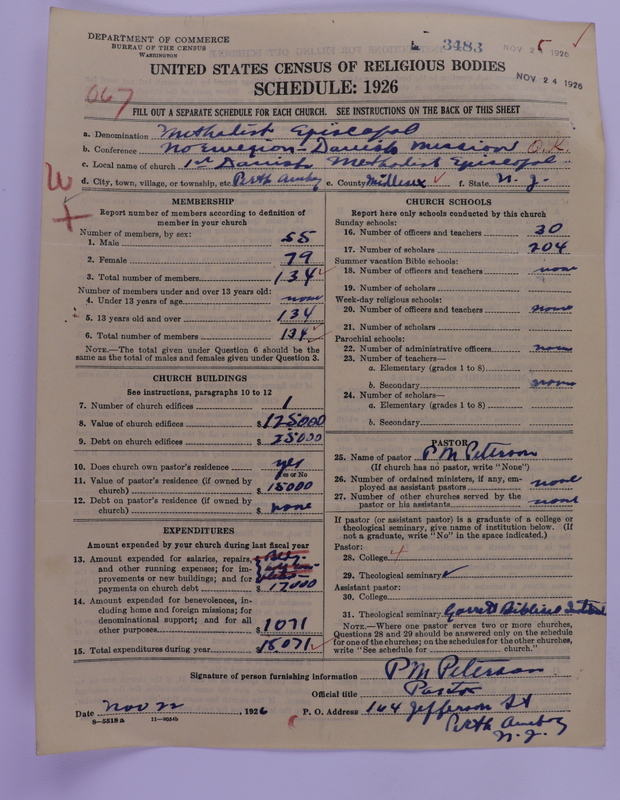 DEPARTMENT OF COMMERCE
BUREAU OF THE CENSUS
WASHINGTON
3483
NOV 5 1926
NOV 24 1926
UNITED STATES CENSUS OF RELIGIOUS BODIES
SCHEDULE: 1926
067
FILL OUT A SEPARATE SCHEDULE FOR EACH CHURCH. SEE INSTRUCTIONS ON THE BACK OF THIS SHEET
a. Denomination Methodist Episcopal
b. Conference Norwegian-Danish Mission O.K.
c. Local name of church 1st Danish Methodist Episcopal
d. City, town, village, or township, etc Perth Amboy e. County Middlesex f. State N. J.
W
MEMBERSHIP
Report number of members according to definition of
member in your church
Number of members, by sex:
1. Male 55
2. Female 79
3. Total number of members 134
Number of members under and over 13 years old:
4. Under 13 years of age none
5. 13 years old and over 134
6. Total number of members 134
NOTE.—The total given under Question 6 should be the
same as the total of males and females given under Question 3.
CHURCH BUILDINGS
See instructions, paragraphs 10 to 12
7. Number of church edifices 1
8. Value of church edifices $125000
9. Debt on church edifices $25000
10. Does church own pastor's residence yes
Yes or No
11. Value of pastor's residence (if owned by
church) $15000
12. Debt on pastor's residence (if owned by
church) $none
EXPENDITURES
Amount expended by your church during last fiscal year
13. Amount expended for salaries, repairs,
and other running expenses; for im-
provements or new buildings; and for
payments on church debt $17000
14. Amount expended for benevolences, in-
cluding home and foreign missions; for
denominational support; and for all
other purposes $1071
15. Total expenditures during year $18,071
CHURCH SCHOOLS
Report here only schools conducted by this church
Sunday schools:
16. Number of officers and teachers 30
17. Number of scholars 204
Summer vacation Bible schools:
18. Number of officers and teachers none
19. Number of scholars
Week-day religious schools:
20. Number of officers and teachers none
21. Number of scholars
Parochial schools:
22. Number of administrative officers none
23. Number of teachers—
a. Elementary (grades 1 to 8)
b. Secondary none
24. Number of scholars—
a. Elementary (grades 1 to 8)
b. Secondary
PASTOR
25. Name of pastor P M Peterson
(If church has no pastor, write "None")
26. Number of ordained ministers, if any, em-
ployed as assistant pastors none
27. Number of other churches served by the
pastor or his assistants none
If pastor (or assistant pastor) is a graduate of a college or
theological seminary, give name of institution below. (If
not a graduate, write "No" in the space indicated.)
Pastor:
28. College
29. Theological seminary
Assistant pastor:
30. College
31. Theological seminary Garrett Biblical
NOTE.—Where one pastor serves two or more churches,
Questions 28 and 29 should be answered only on the schedule
for one of the churches; on the schedules for the other churches,
write "See schedule for church."
Signature of person furnishing information P M Peterson
Official title Pastor
Date Nov 22, 1926 P. O. Address 164 Jefferson St
Perth Amboy
N. J.
8—5518a 11—9054b